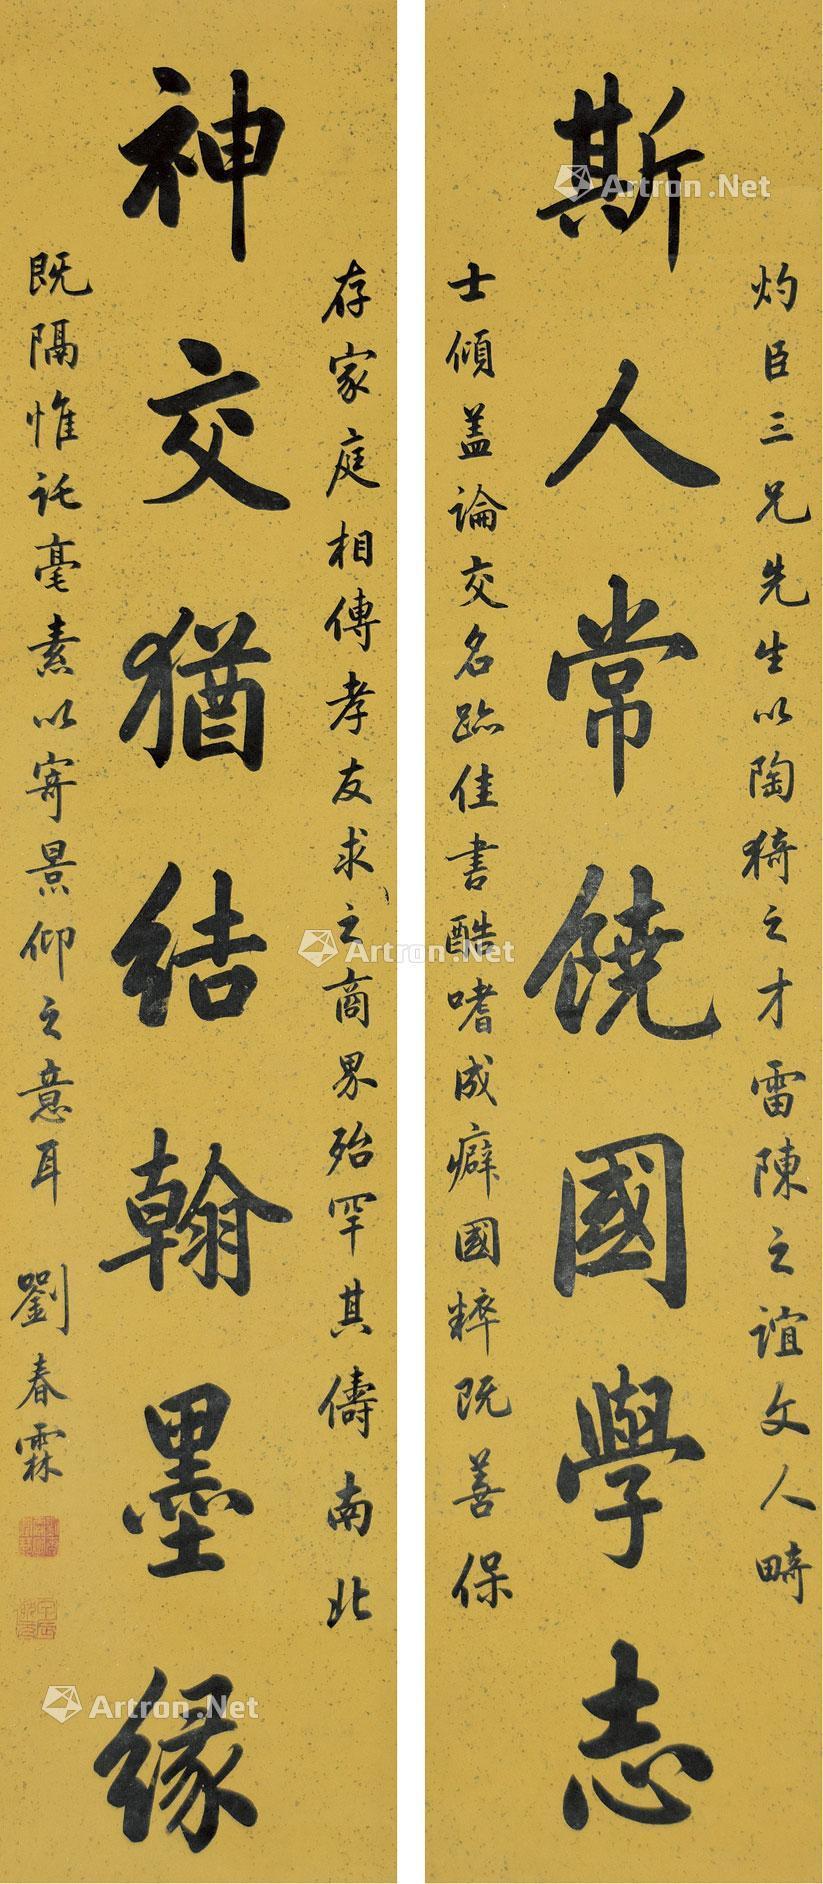 斯人常饒國學志
灼臣三兄先生以陶猗之才雷陳之誼文人疇
士傾蓋論交名跡佳書酷嗜成癖國粹既善保
神交猶結翰墨緣
存家庭相傳孝友求之商界殆罕其儔南北
既隔惟託毫素以寄景仰之意耳
劉春霖
Artron.Net
Artron.Net
Artron.Net